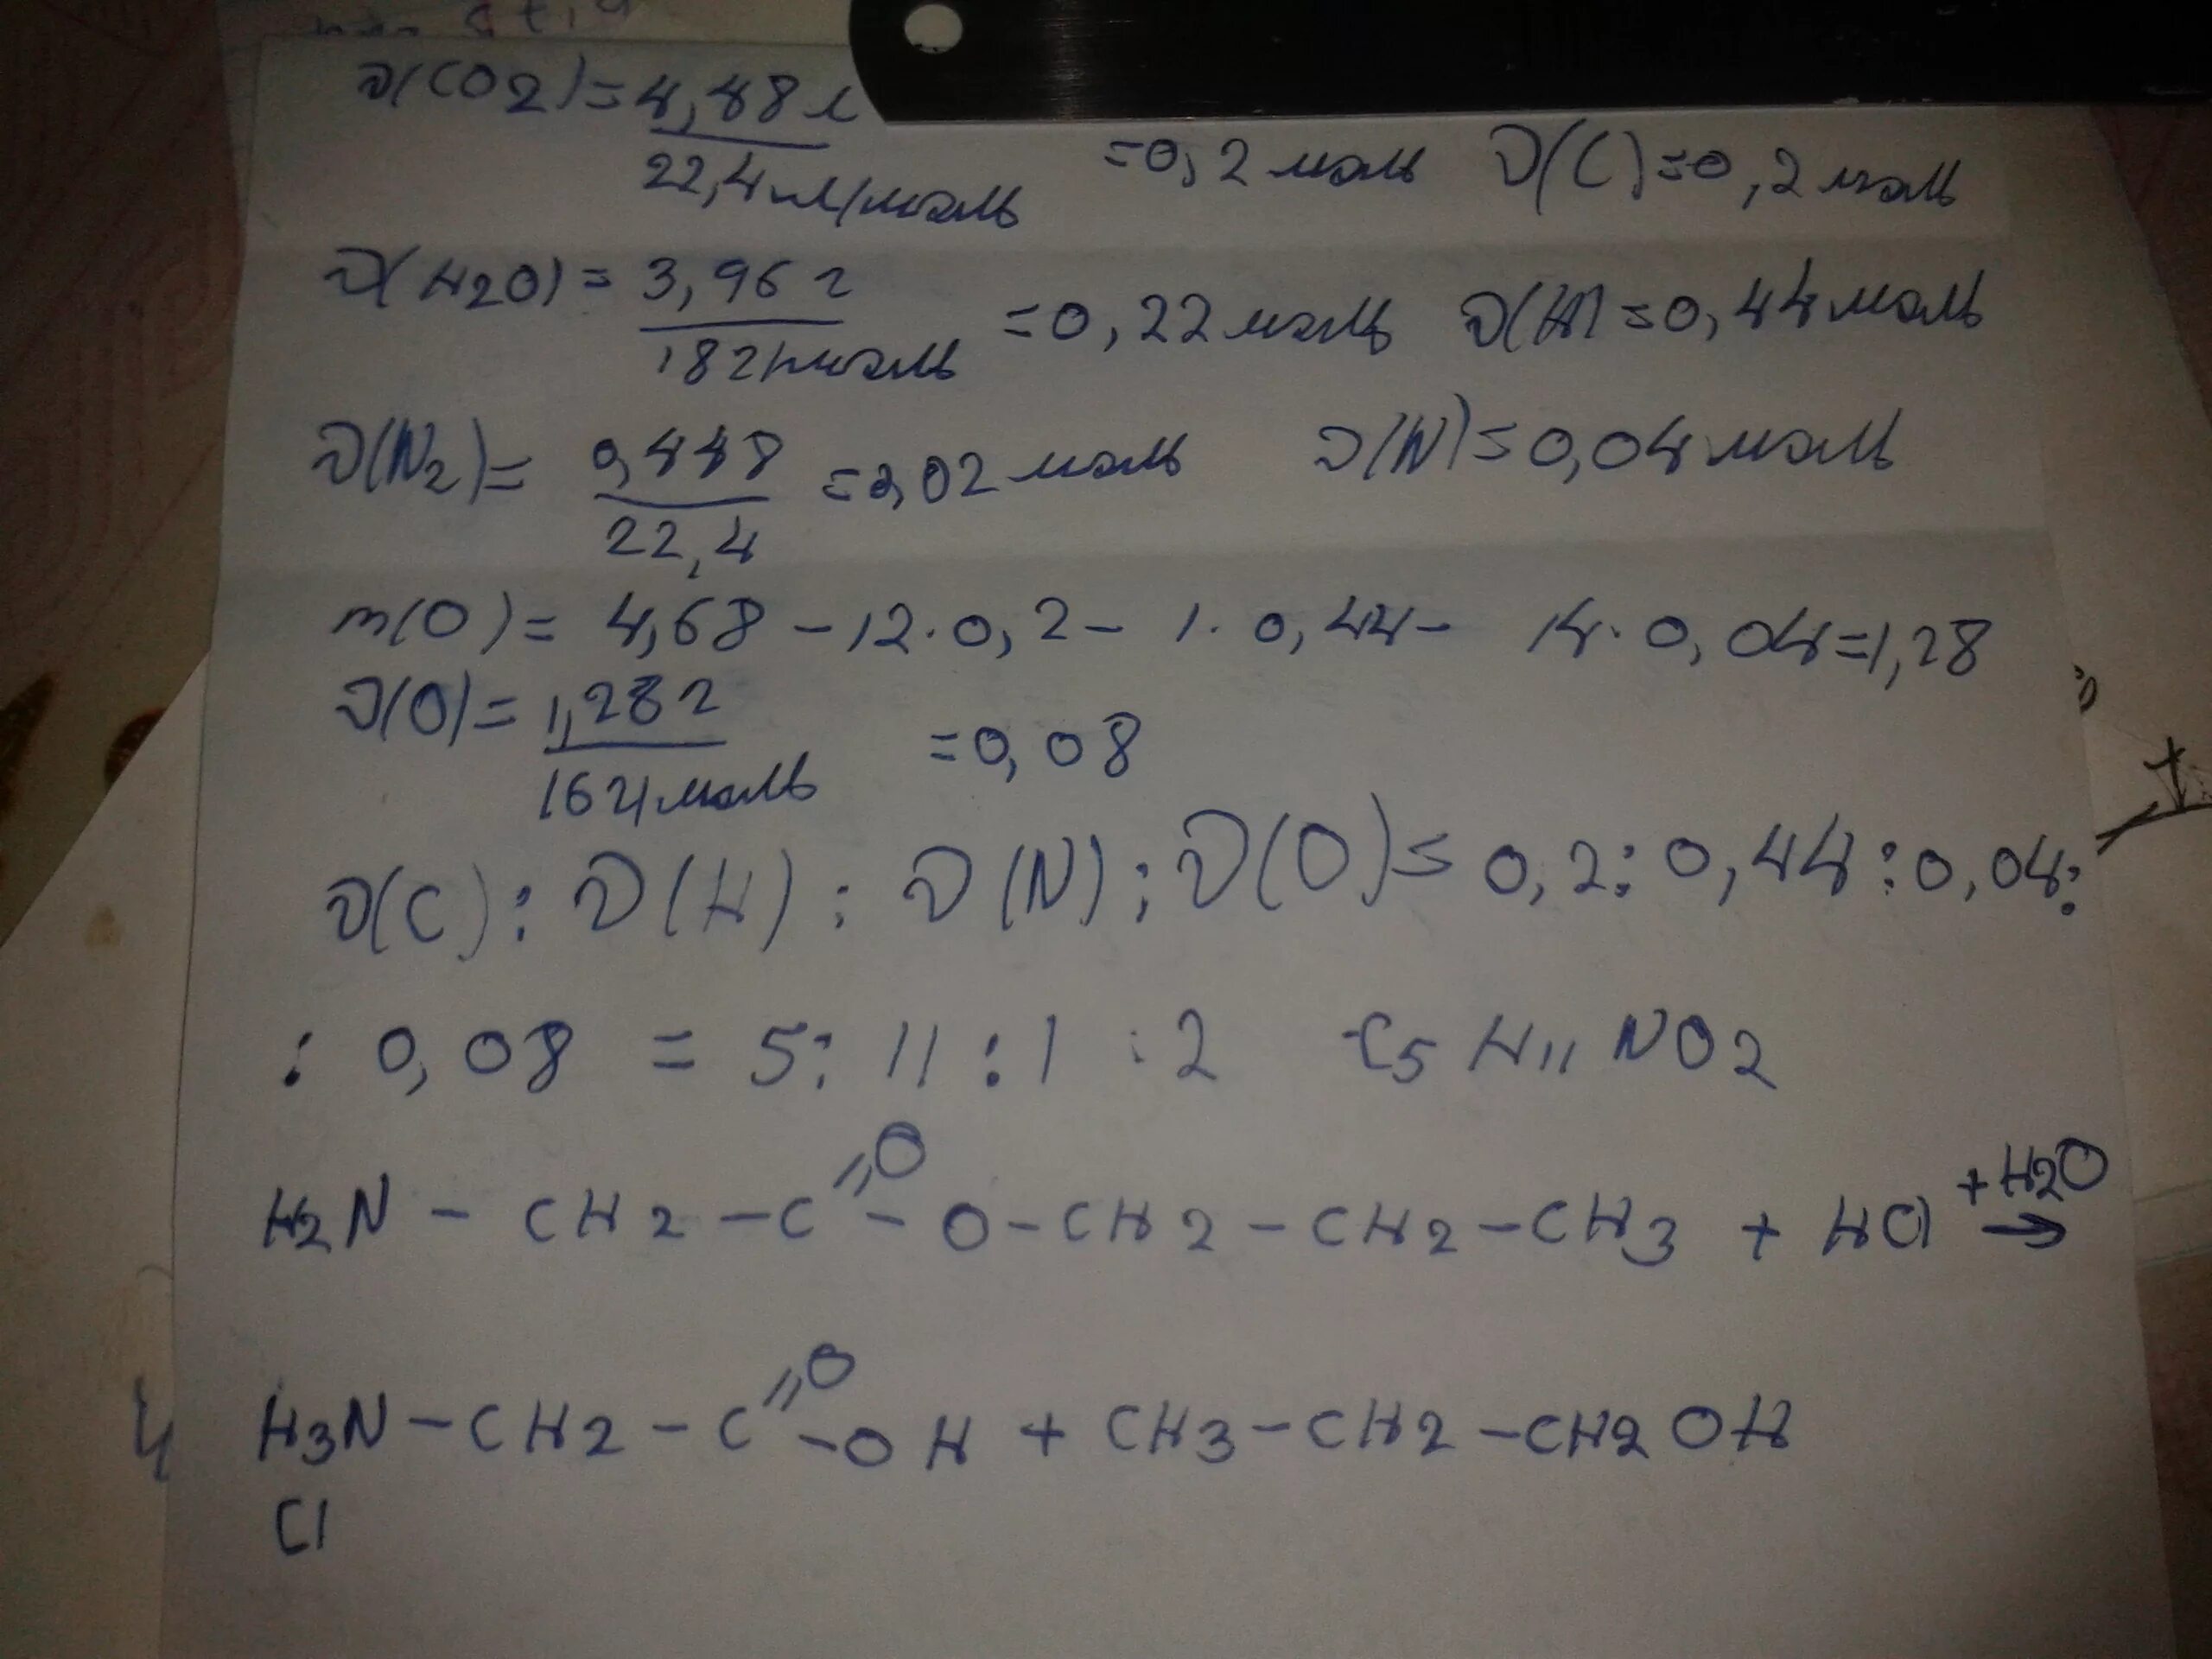 ν(CO2)=4,48л/22,4 л/моль =0,2 моль ν(C)=0,2 моль
ν(H2O)=3,96 г/18 г/моль =0,22 моль ν(H)=0,44 моль
ν(N2)=0,448/22,4 =0,02 моль ν(N)=0,04 моль
m(O)= 4,68 -12·0,2- 1·0,44- 14·0,04=1,28
ν(O)=1,28 г/16 г/моль =0,08
ν(C):ν(H):ν(N):ν(O)=0,2:0,44:0,04:
:0,08 = 5:11:1:2 C5H11NO2
H2N-CH2-C=O-O-CH2-CH2-CH3 + HCl +H2O →
H3N-CH2-C=O-OH + CH3-CH2-CH2OH
Cl